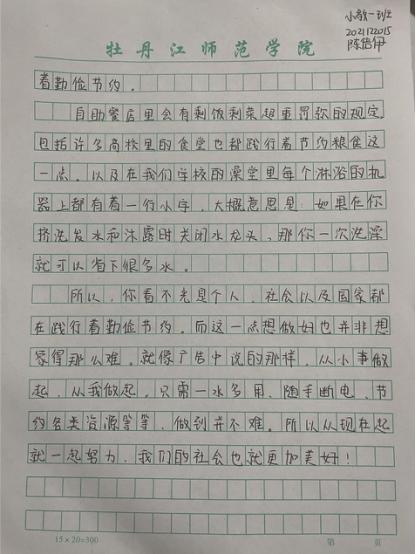 小教一班
2021122015
陈信伊
牡丹江师范学院
着勤俭节约。
自助餐店里会有剩饭剩菜超重罚款的规定,
包括许多高校里的食堂也都践行着节约粮食这
一点。以及在我们学校的澡堂里每个淋浴的机
器上都有着一行小字,大概意思是:如果在你
挤洗发水和沐露时关闭水龙头,那你一次洗澡
就可以省下很多水。
所以,你看不光是个人,社会以及国家都
在践行着勤俭节约。而这一点想做好也并非想
象得那么难。就像广告中说的那样,从小事做
起,从我做起,只需一水多用、随手断电、节
约各类资源等等,做到并不难。所以从现在起
就一起努力,我们的社会也就更加美好!
15×20=300
第 页